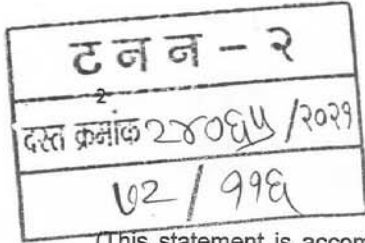 ट न न - २
2
दस्त क्रमांक २४०६५ /२०२१
७२ / ११६
(This statement is accom